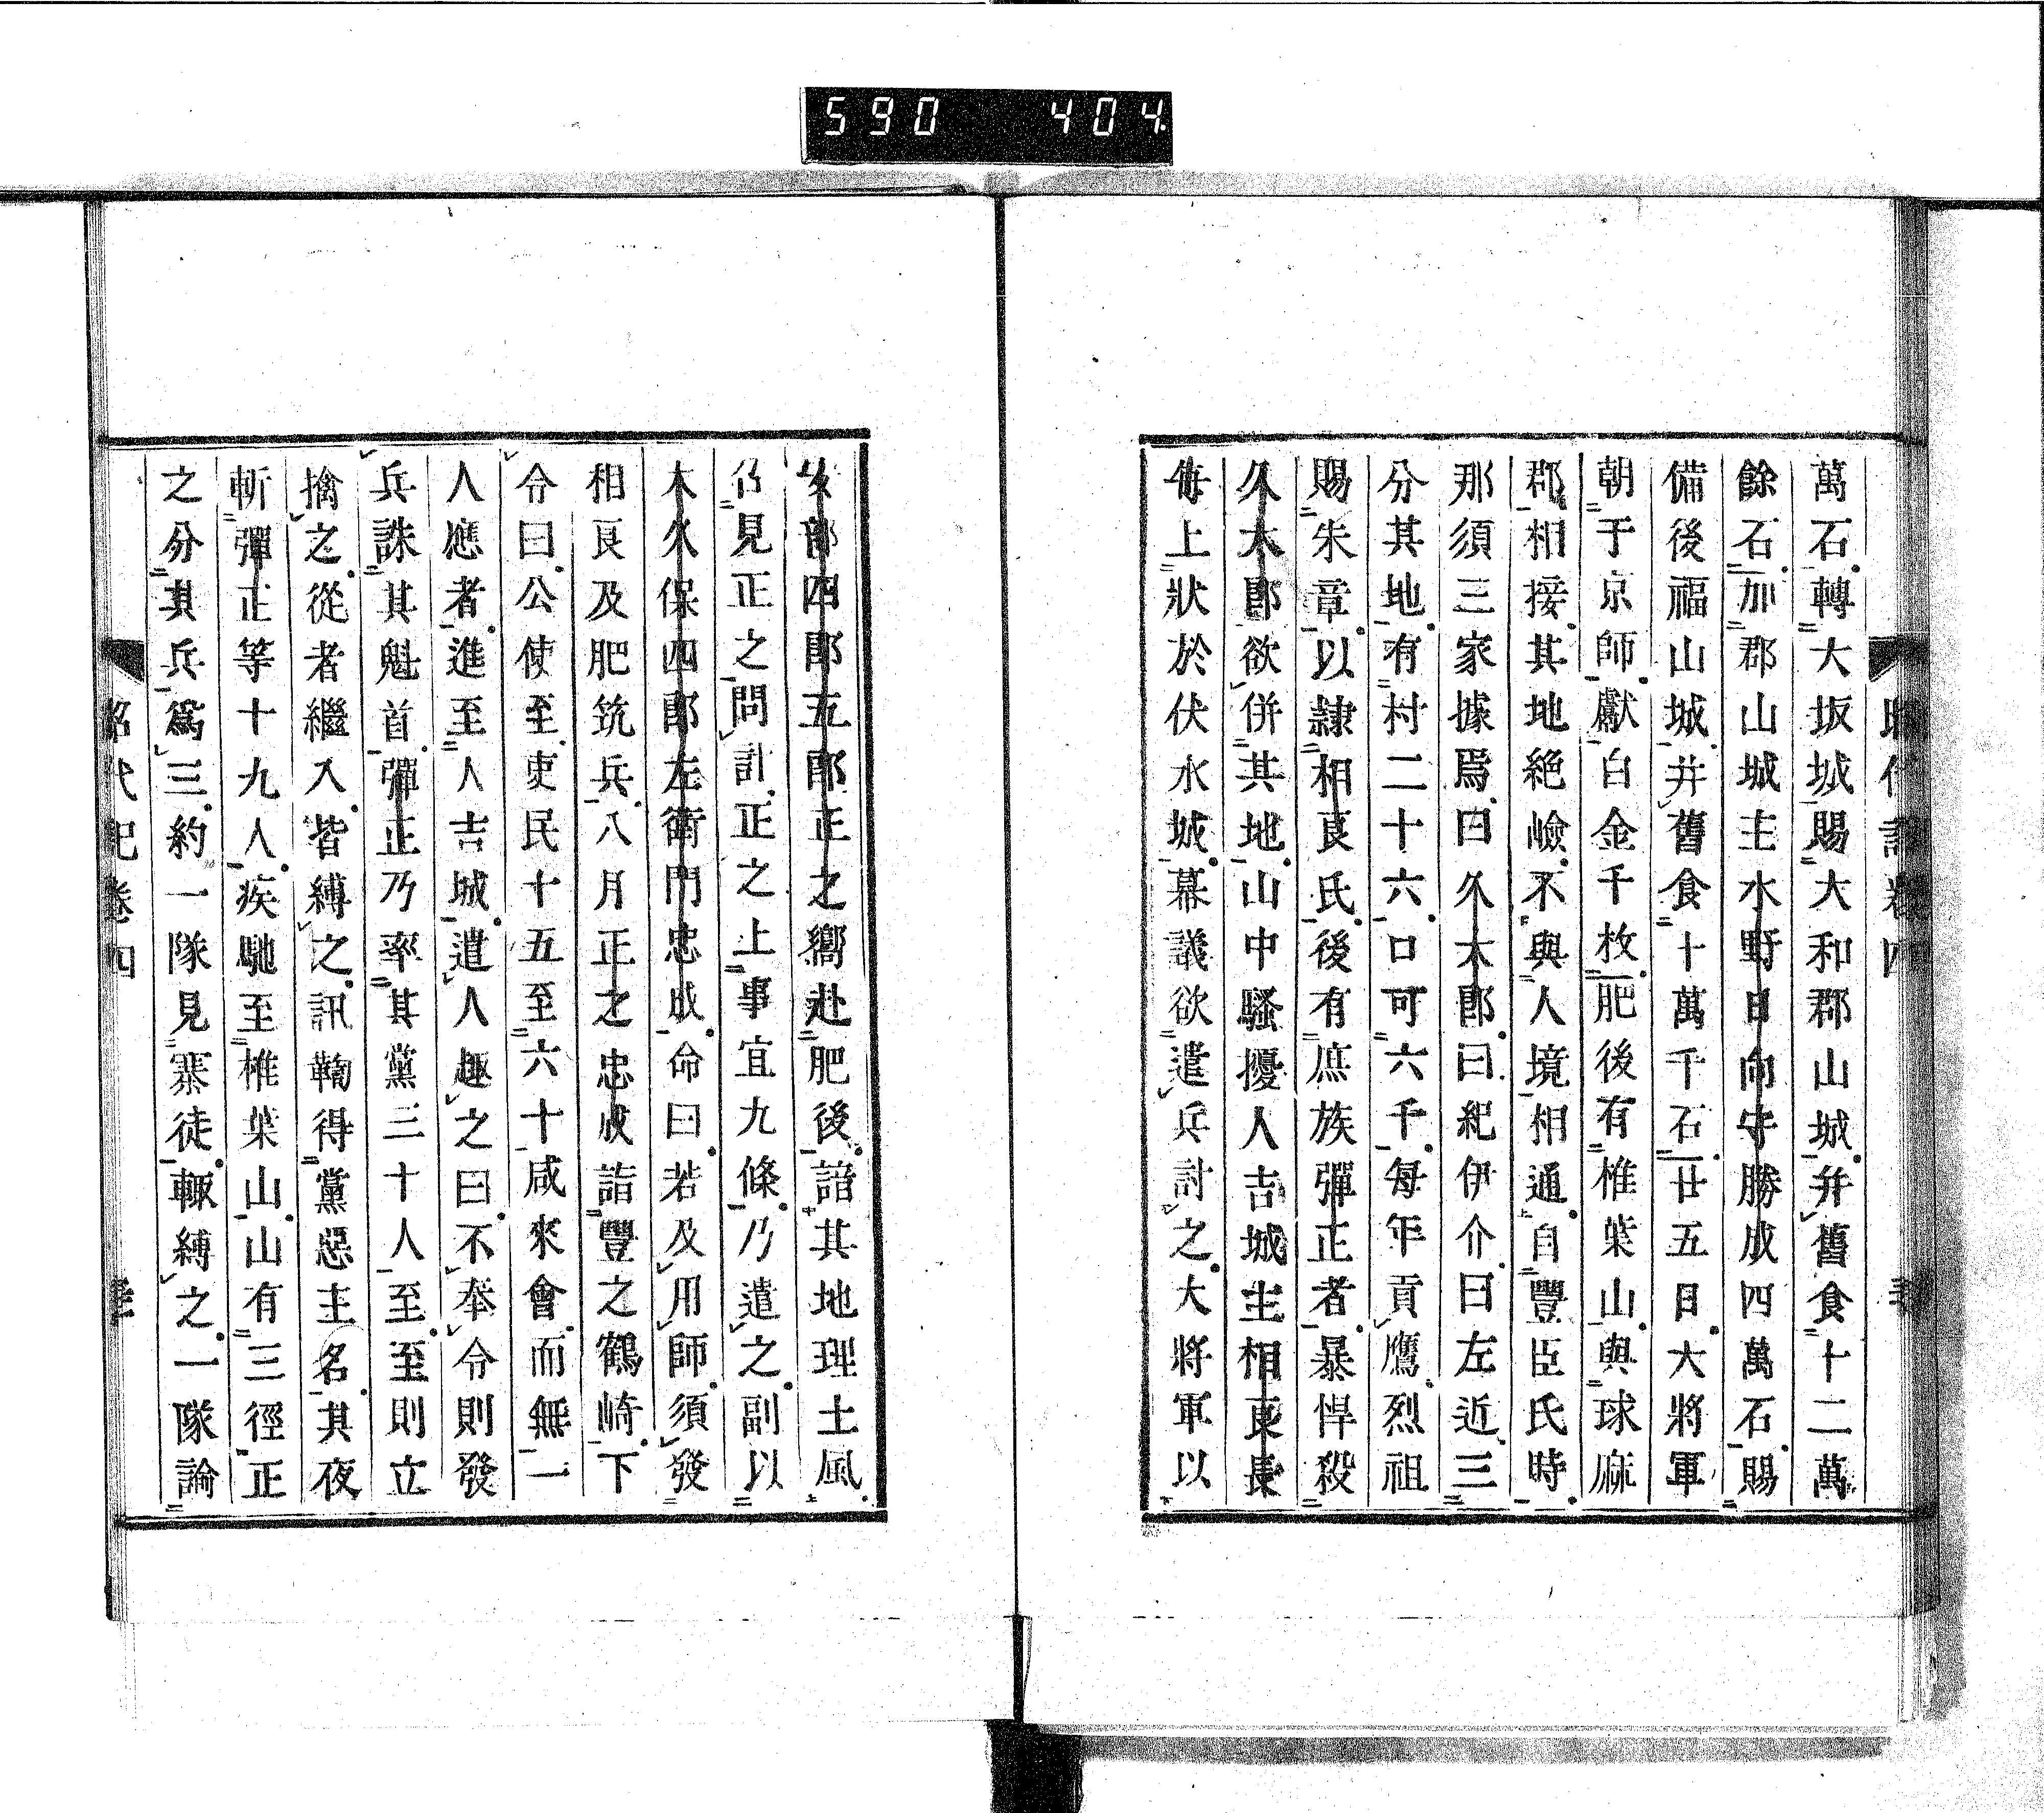 590 404
昭代記卷四
萬石轉大坂城賜大和郡山城幷舊食十二萬
餘石加郡山城主水野日向守勝成四萬石賜
備後福山城幷舊食十萬千石廿五日大將軍
朝于京師獻白金千枚肥後有椎葉山與球麻
郡相接其地絕嶮不與人境相通自豐臣氏時
那須三家據焉曰久太郎曰紀伊介曰左近三
分其地有村二十六口可六千每年貢鷹烈祖
賜朱章以隷相良氏後有庶族彈正者暴悍殺
久太郎欲併其地山中騷擾人吉城主相良長
每上狀於伏水城幕議欲遣兵討之大將軍以
部四郎五郎正之嚮赴肥後諳其地理土風
召見正之問計正之上事宜九條乃遣之副以
大久保四郎左衛門忠成命曰若及用師須發
相良及肥筑兵八月正之忠成詣豐之鶴崎下
令曰公使至吏民十五至六十咸來會而無一
人應者進至人吉城遣人趣之曰不奉令則發
兵誅其魁首彈正乃率其黨三十人至至則立
擒之從者繼入皆縛之訊鞫得黨惡主名其夜
斬彈正等十九人疾馳至椎葉山山有三徑正
之分其兵爲三約一隊見寨徒輙縛之一隊論
昭代記卷四